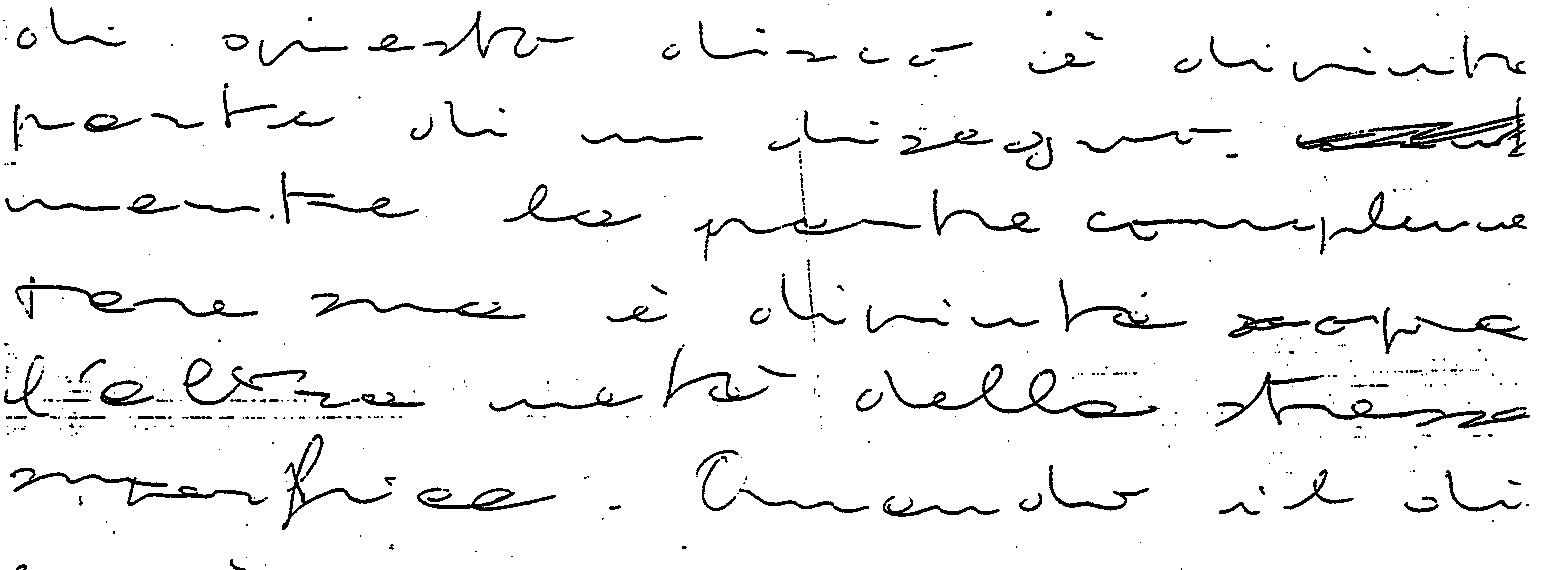 di questo disco è dipinta
parte di un disegno.
mentre la parte complemen
tare sua è dipinta sopra
l'altra metà della stessa
superficie. Quando il di